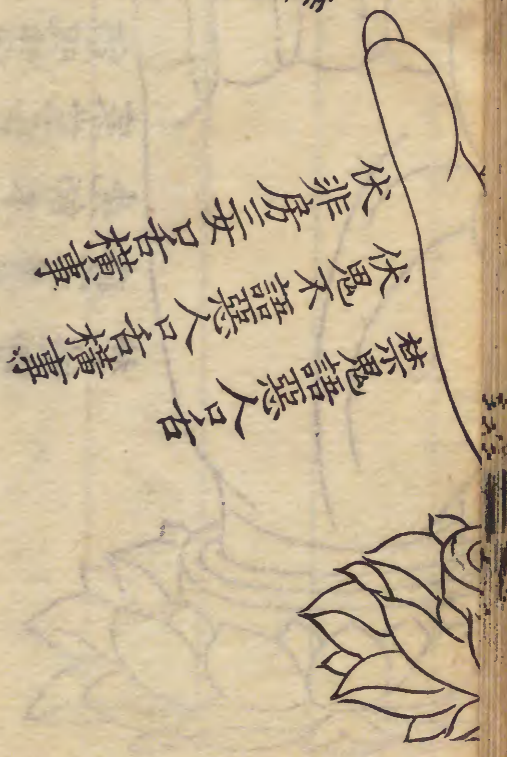 禁鬼語惡人口舌
伏鬼不語惡人口舌横事
伏非房三女口舌横事